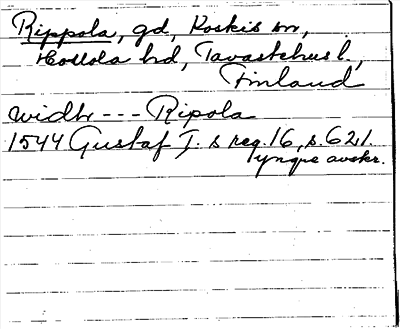 Rippola, gd, Koskis sn,
Hollola hd, Tavastehus l.,
Finland
widh --- Ripola
1544 Gustaf I. s reg. 16, s. 621.
yngre avskr.